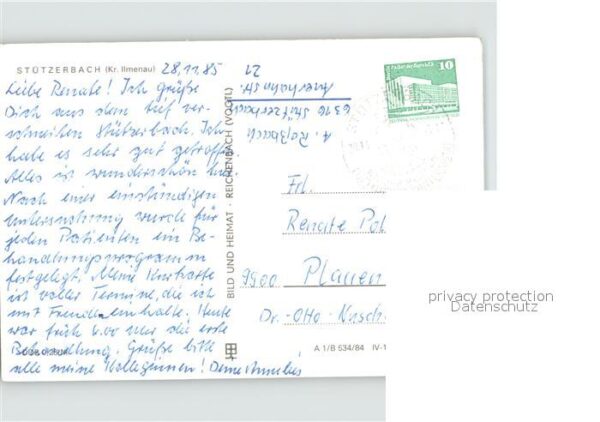 STÜTZERBACH (Kr. Ilmenau) 28.11.85
Liebe Renate! Ich grüße
Dich aus dem tief ver-
schneiten Stützerbach. Ich
habe es sehr gut getroffen.
Alles ist wunderschön hier.
Nach einer einstündigen
Untersuchung wurde für
jeden Patienten ein Be-
handlungsprogramm
festgelegt. Meine Kurkarte
ist voller Termine, die ich
mit Freuden einhalte. Heute
war früh 6.00 Uhr die erste
Behandlung. Grüße bitte
alle meine Kolleginnen! Deine
BILD UND HEIMAT · REICHENBACH (VOGTL)
A. Roßbach
6316 Stützerbach
Auerhahnstr.
21
10
Frl.
Renate Pol
9900 Plauen
Dr.-Otto-Nusch
A 1/B 534/84 IV-1
privacy protection
Datenschutz